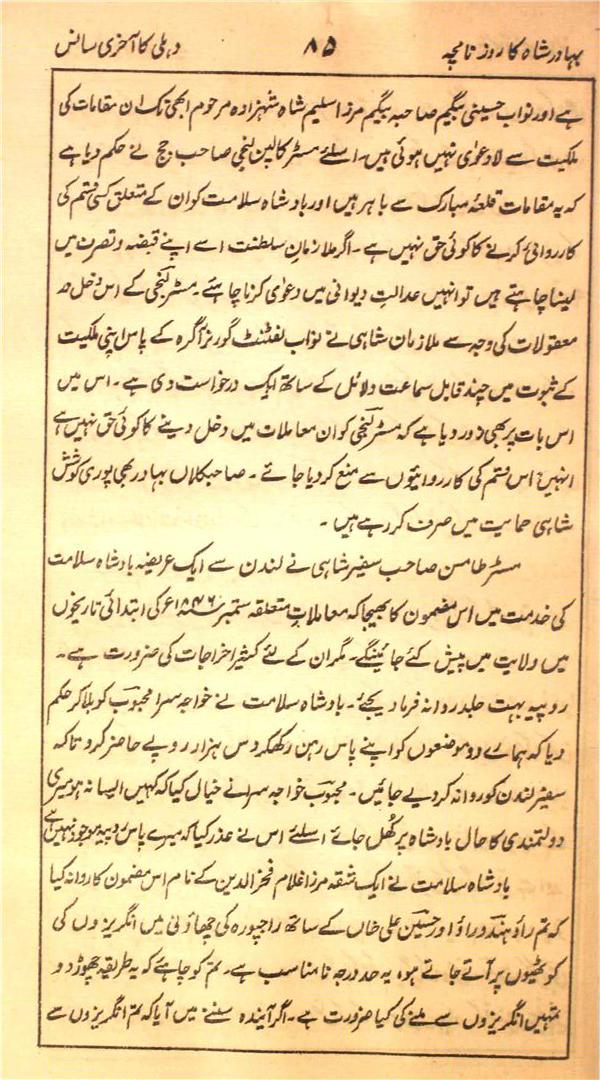 بہادر شاہ کا روزنامچہ ۸۵ دہلی کا آخری سانس
ہے اور نواب حسینی بیگم صاحبہ بیگم مرزا سلیم شاہ شہزادہ مرحوم ابھی تک ان مقامات کی
ملکیت سے لا دعوٰی نہیں ہوئی ہیں۔ اسلئے مسٹر کالپن لنجی صاحب جج نے حکم دیا ہے
کہ یہ مقامات قلعۂ مبارک سے باہر ہیں اور بادشاہ سلامت کو ان کے متعلق کسی قسم کی
کارروائی کرنے کا کوئی حق نہیں ہے۔ اگر ملازمان سلطنت اسے اپنے قبضہ و تصرف میں
لینا چاہتے ہیں تو انہیں عدالتِ دیوانی میں دعوٰی کرنا چاہئے۔ مسٹر لنجی کے اس دخل در
معقولات کی وجہ سے ملازمان شاہی نے نواب لفٹننٹ گورنر آگرہ کے پاس اپنی ملکیت
کے ثبوت میں چند قابل سماعت دلائل کے ساتھ ایک درخواست دی ہے۔ اس میں
اس بات پر بھی زور دیا ہے کہ مسٹر لنجی کو ان معاملات میں دخل دینے کا کوئی حق نہیں ہے
انہیں اس قسم کی کارروائیوں سے منع کر دیا جائے۔ صاحبکلاں بہادر بھی پوری کوشش
شاہی حمایت میں صرف کر رہے ہیں۔
مسٹر طامسن صاحب سفیر شاہی نے لندن سے ایک عریضہ بادشاہ سلامت
کی خدمت میں اس مضمون کا بھیجا کہ معاملاتِ متعلقہ ستمبر ۱۸۴۶ء کی ابتدائی تاریخوں
میں ولایت میں پیش کئے جائینگے۔ مگر ان کے لئے کثیر اخراجات کی ضرورت ہے۔
روپیہ بہت جلد روانہ فرما دیجئے۔ بادشاہ سلامت نے خواجہ سرا محبوب کو بلا کر حکم
دیا کہ ہمارے دو موضعوں کو اپنے پاس رہن رکھکر دس ہزار روپے حاضر کرو تاکہ
سفیر لندن کو روانہ کر دیے جائیں۔ محبوب خواجہ سرا نے خیال کیا کہ کہیں ایسا نہ ہو میری
دولتمندی کا حال بادشاہ پر کُھل جائے اسلئے اس نے عذر کیا کہ میرے پاس روپیہ موجود نہیں ہے
بادشاہ سلامت نے ایک شقہ مرزا غلام فخرالدین کے نام اس مضمون کا روانہ کیا
کہ تم راؤ ہندو راؤ اور حسین علی خاں کے ساتھ راجپورہ کی چھاؤنی میں انگریزوں کی
کوٹھیوں پر آتے جاتے ہو، یہ حد درجہ نامناسب ہے۔ تم کو چاہئے کہ یہ طریقہ چھوڑ دو
تمہیں انگریزوں سے ملنے کی کیا ضرورت ہے۔ اگر آیندہ سننے میں آیا کہ تم انگریزوں سے